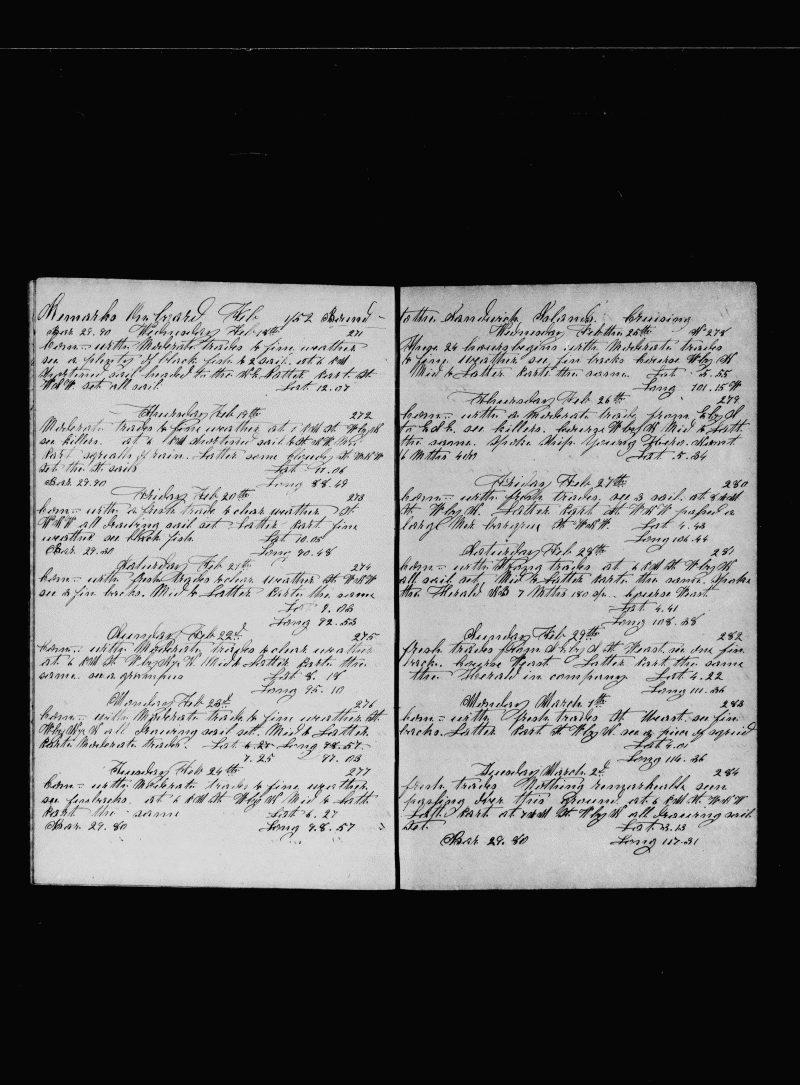 Remarks On board Feb 1852 Bound
Bar 29.90 Wednesday Feb 18th 271
Com= with Moderate trades & fine weather
see a plenty of black fish & 2 sail. at 6 PM
shortened sail headed to the Latter Part St
WNW. set all sail Lat 12.07
Thursday Feb 19th 272
Moderate trades & fine weather at 1 PM St W by N
see killers. at 6 PM shortened sail & St WNW
Part squalls of rain. Latter some St WNW
set the St sails Lat 11.06
Bar 29.90 Long 88.49
Friday Feb 20th 273
Com= with a fresh trade & clear weather St
WNW all drawing sail set Latter Part fine
weather see black fish Lat 10.05
Bar 29.90 Long 90.48
Saturday Feb 21st 274
Com= with fresh trades & clear weather St WNW
see a fin backs. Mid & Latter Parts the same
Lat 9.03
Long 92.53
Sunday Feb 22d 275
Com= with Moderate trades & clear weather
at 6 PM St W by N Mid & Latter Parts the
same. see a grampus Lat 8.18
Long 95.10
Monday Feb 23d 276
Com= with Moderate trades & fine weather St
W by N all drawing sail set. Mid & Latter
Parts Moderate trades. Lat Long
7.25 97.03
Tuesday Feb 24th 277
Com= with Moderate trades & fine weather
see finbacks. at 6 PM St W by N Mid & Latt
Part the same Lat 6.27
Bar 29.80 Long 98.57
to the Sandwich Islands. Cruising
Wednesday Feb the 25th 278
These 24 hours begins with Moderate trades
& fine weather see fin backs Course W by N
Mid & Latter Parts the same Lat 5.55
Long 101.15 W
Thursday Feb 26th 279
Com= with a Moderate trade from E by S
to E. see killers. Course W by N Mid & Latt
the same. Spoke Ship Young Phero
6 Mths 400 Lat 5.34
Friday Feb 27th 280
Com= with fresh trades. see 3 sail. at
St W by N. Latter Part St WNW passed a
large Mer St WNW. Lat 4.43
Long 106.44
Saturday Feb 28th 281
Com= with Strong trades at 6 PM St W by N
all sail set, Mid & Latter Parts the same. Spoke
the Herald NB 7 Mths 180 sp. Course West
Lat 4.41
Long 108.38
Sunday Feb 29th 282
fresh trades from E by S St West see one fin
back. Course West Latter Part the same
the Herald in company Lat 4.22
Long 111.36
Monday March 1st 283
Com= with fresh trades St West. see fin
backs. Latter Part St W by N. see a piece of squid
Lat 4.01
Long 114.36
Tuesday March 2d 284
fresh trades Nothing remarkable seen
passing over this ground at 6 PM St WNW
Latt Part at St W by N all drawing sail
set. Lat 3.13
Bar 29.80 Long 117.31